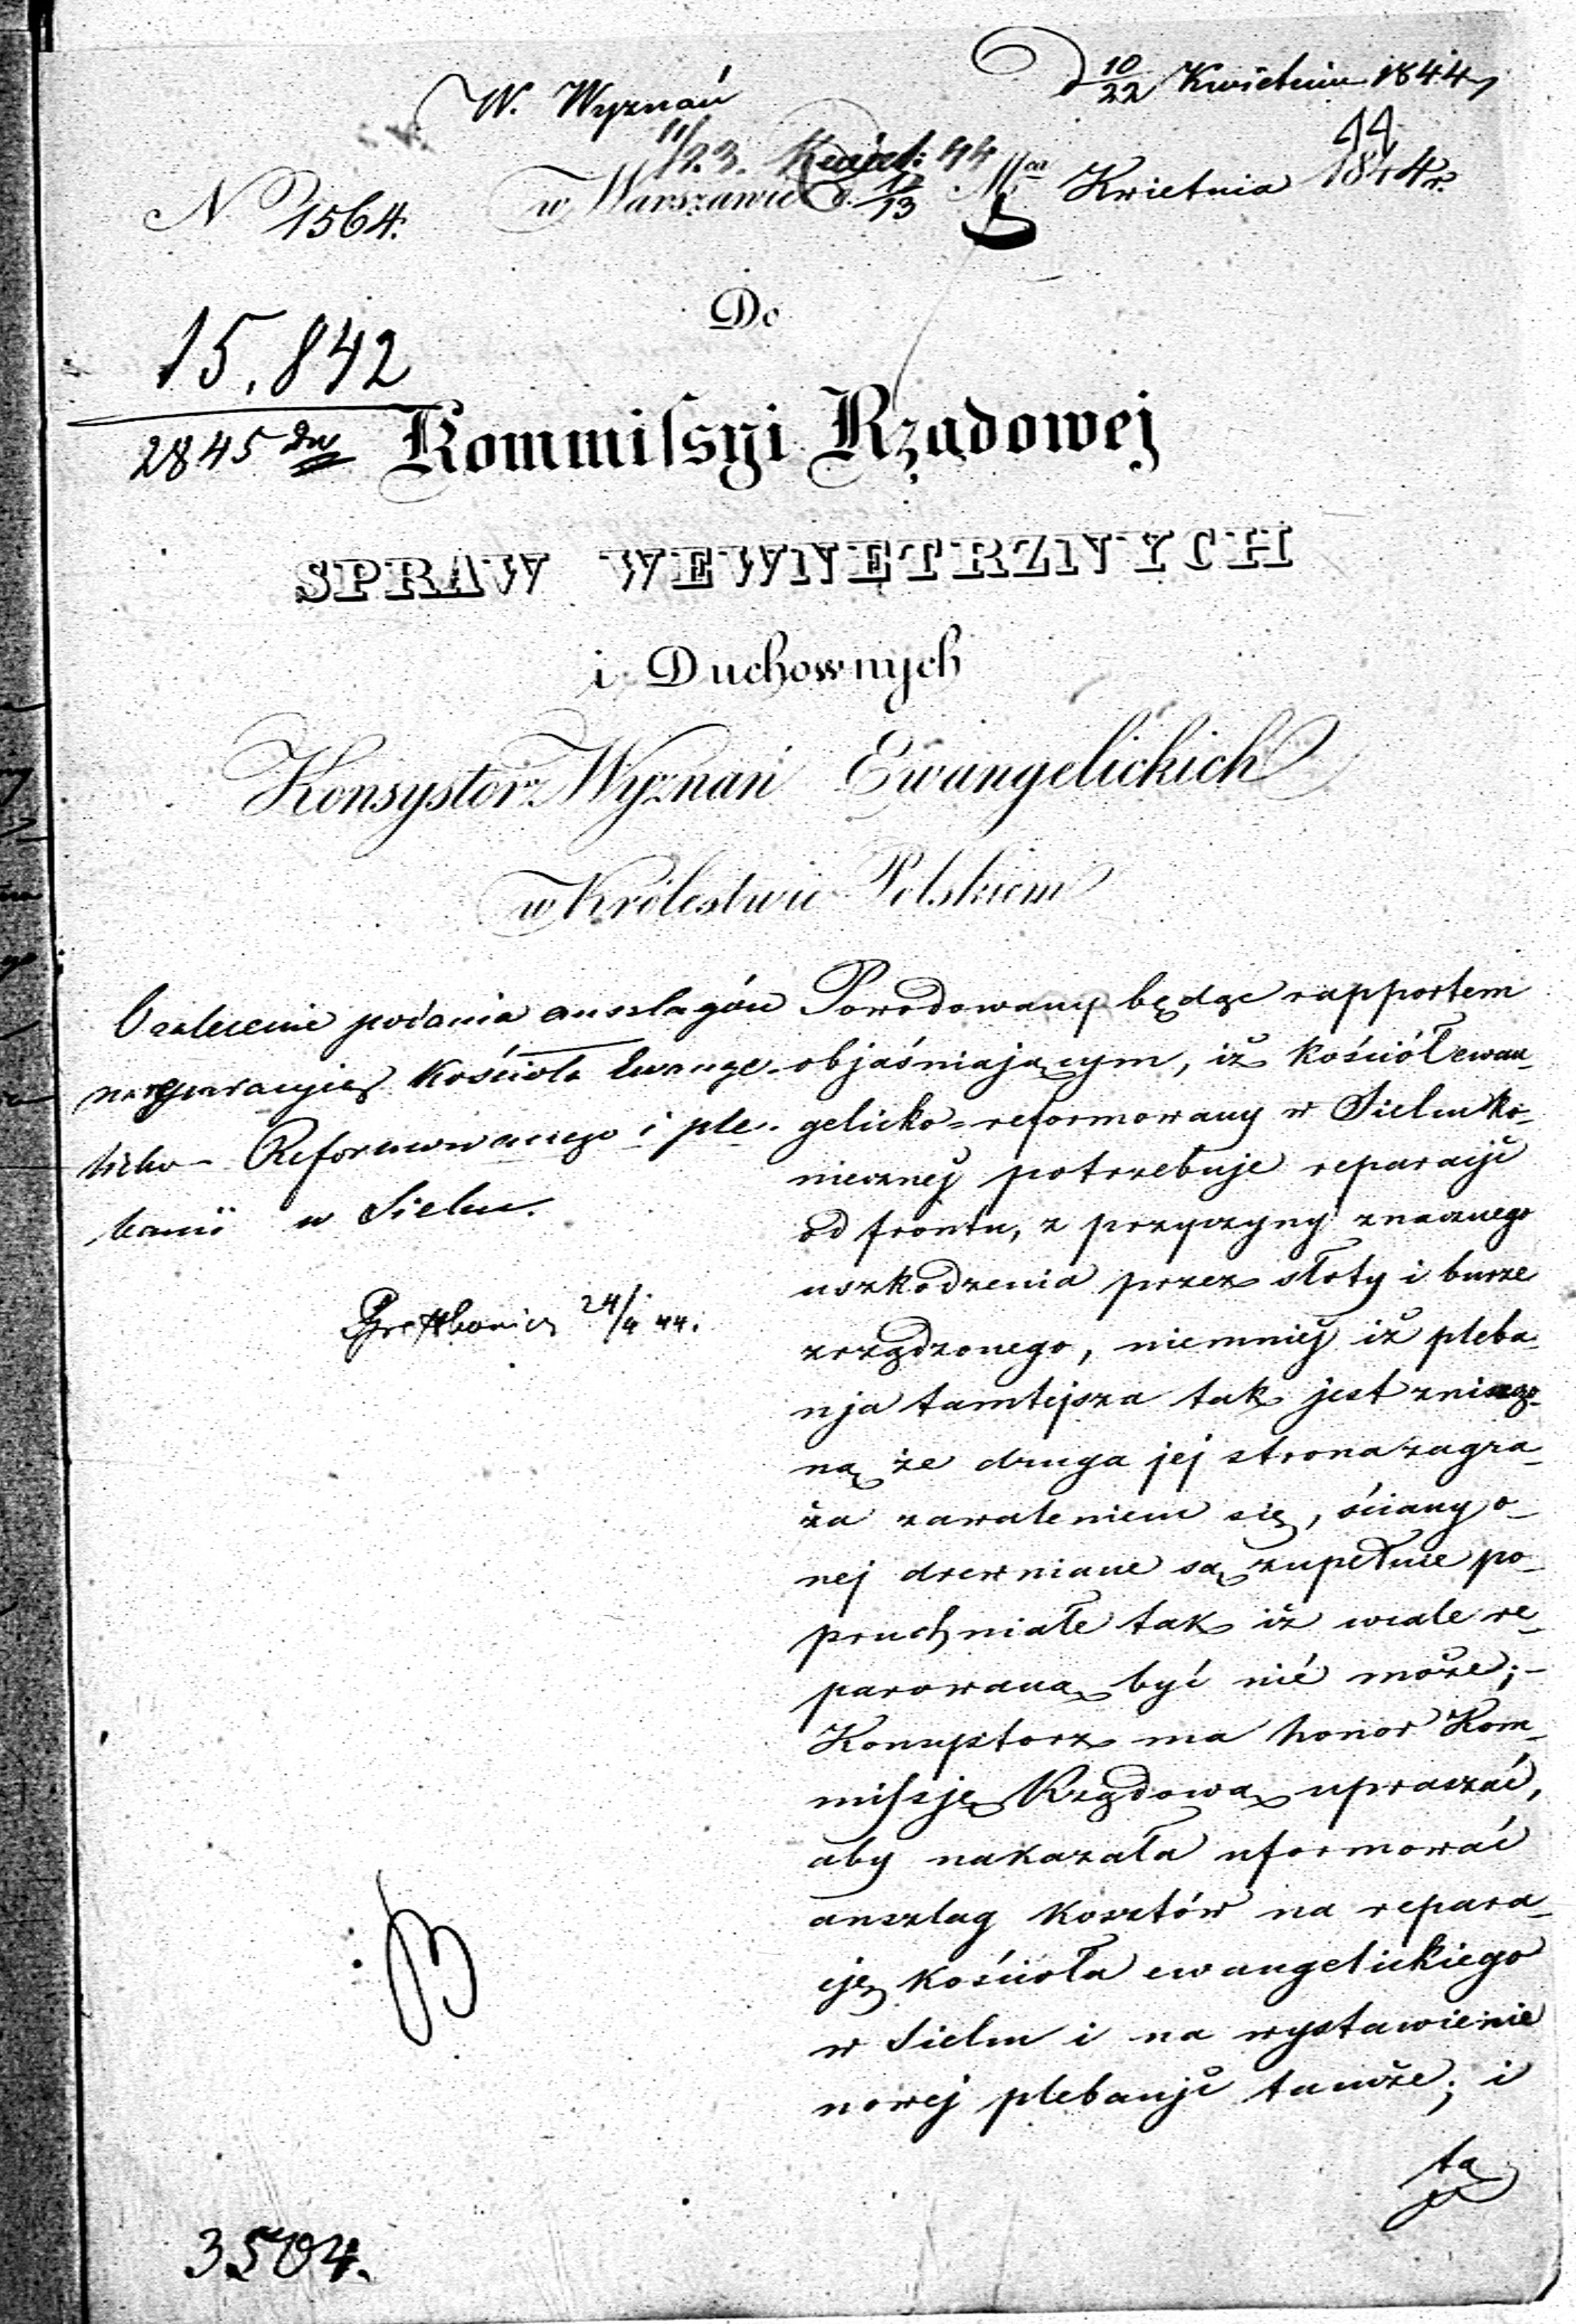 d 10/22 Kwietnia 1844
W. Wyznań
11/23. Kwiet: 44
44
N 1564.
w Warszawie d. 1/13 Mca Kwietnia 1844 r.
Do
15.842
2845
Kommissyi Rządowej
SPRAW WEWNĘTRZNYCH
i Duchownych
Konsystorz Wyznań Ewangelickich
w Królestwie Polskiem
O zalecenie podania anszlagów
na reparacyię Kościoła Ewange-
licko-Reformowanego i ple-
banii w Sielcu.
24/4 44.
Powodowany będąc rapportem
objaśniającym, iż kościół ewan-
gelicko-reformowany w Sielcu ko-
niecznej potrzebuje reparacji
od frontu, z przyczyny znacznego
uszkodzenia przez słoty i burze
zrządzonego, niemniej iż pleba-
nja tamtejsza tak jest zniszczo-
ną że druga jej strona zagra-
ża zawaleniem się, ściany o-
nej drewniane są zupełnie po-
pruchniałe tak iż wcale re-
parowaną być nié może;-
Konsystorz ma honor Kom-
missję Rządową upraszać,
aby nakazała uformować
anszlag kosztów na repara-
cję kościoła ewangelickiego
w Sielcu i na wystawienie
nowej plebanji tamże; i
ta
3504.